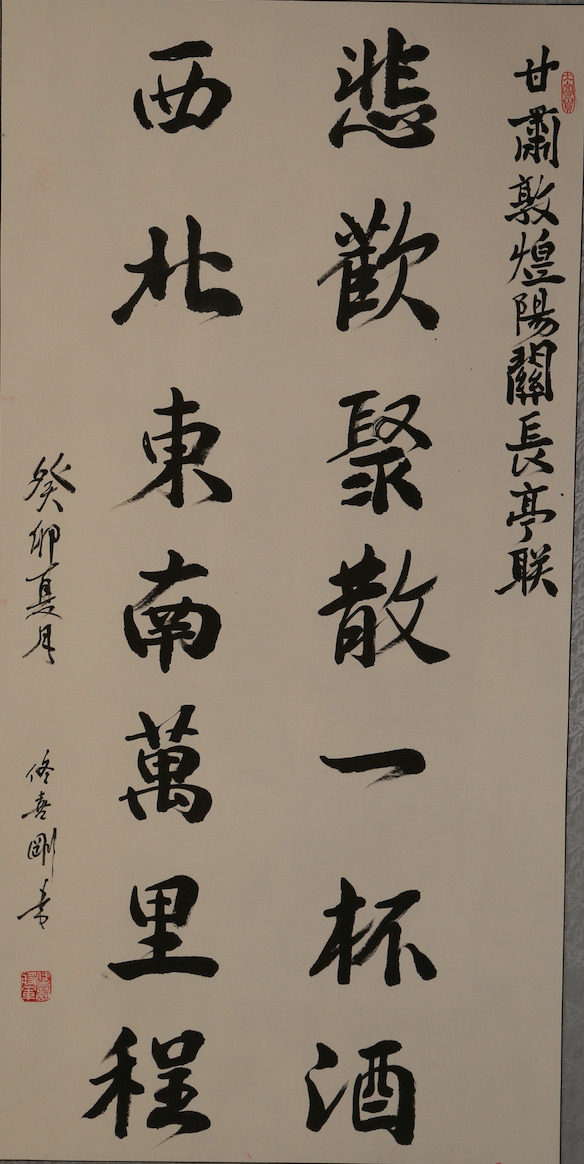 甘肅敦煌陽關長亭联
悲歡聚散一杯酒
西北東南萬里程
癸卯夏月 佟喜剛书